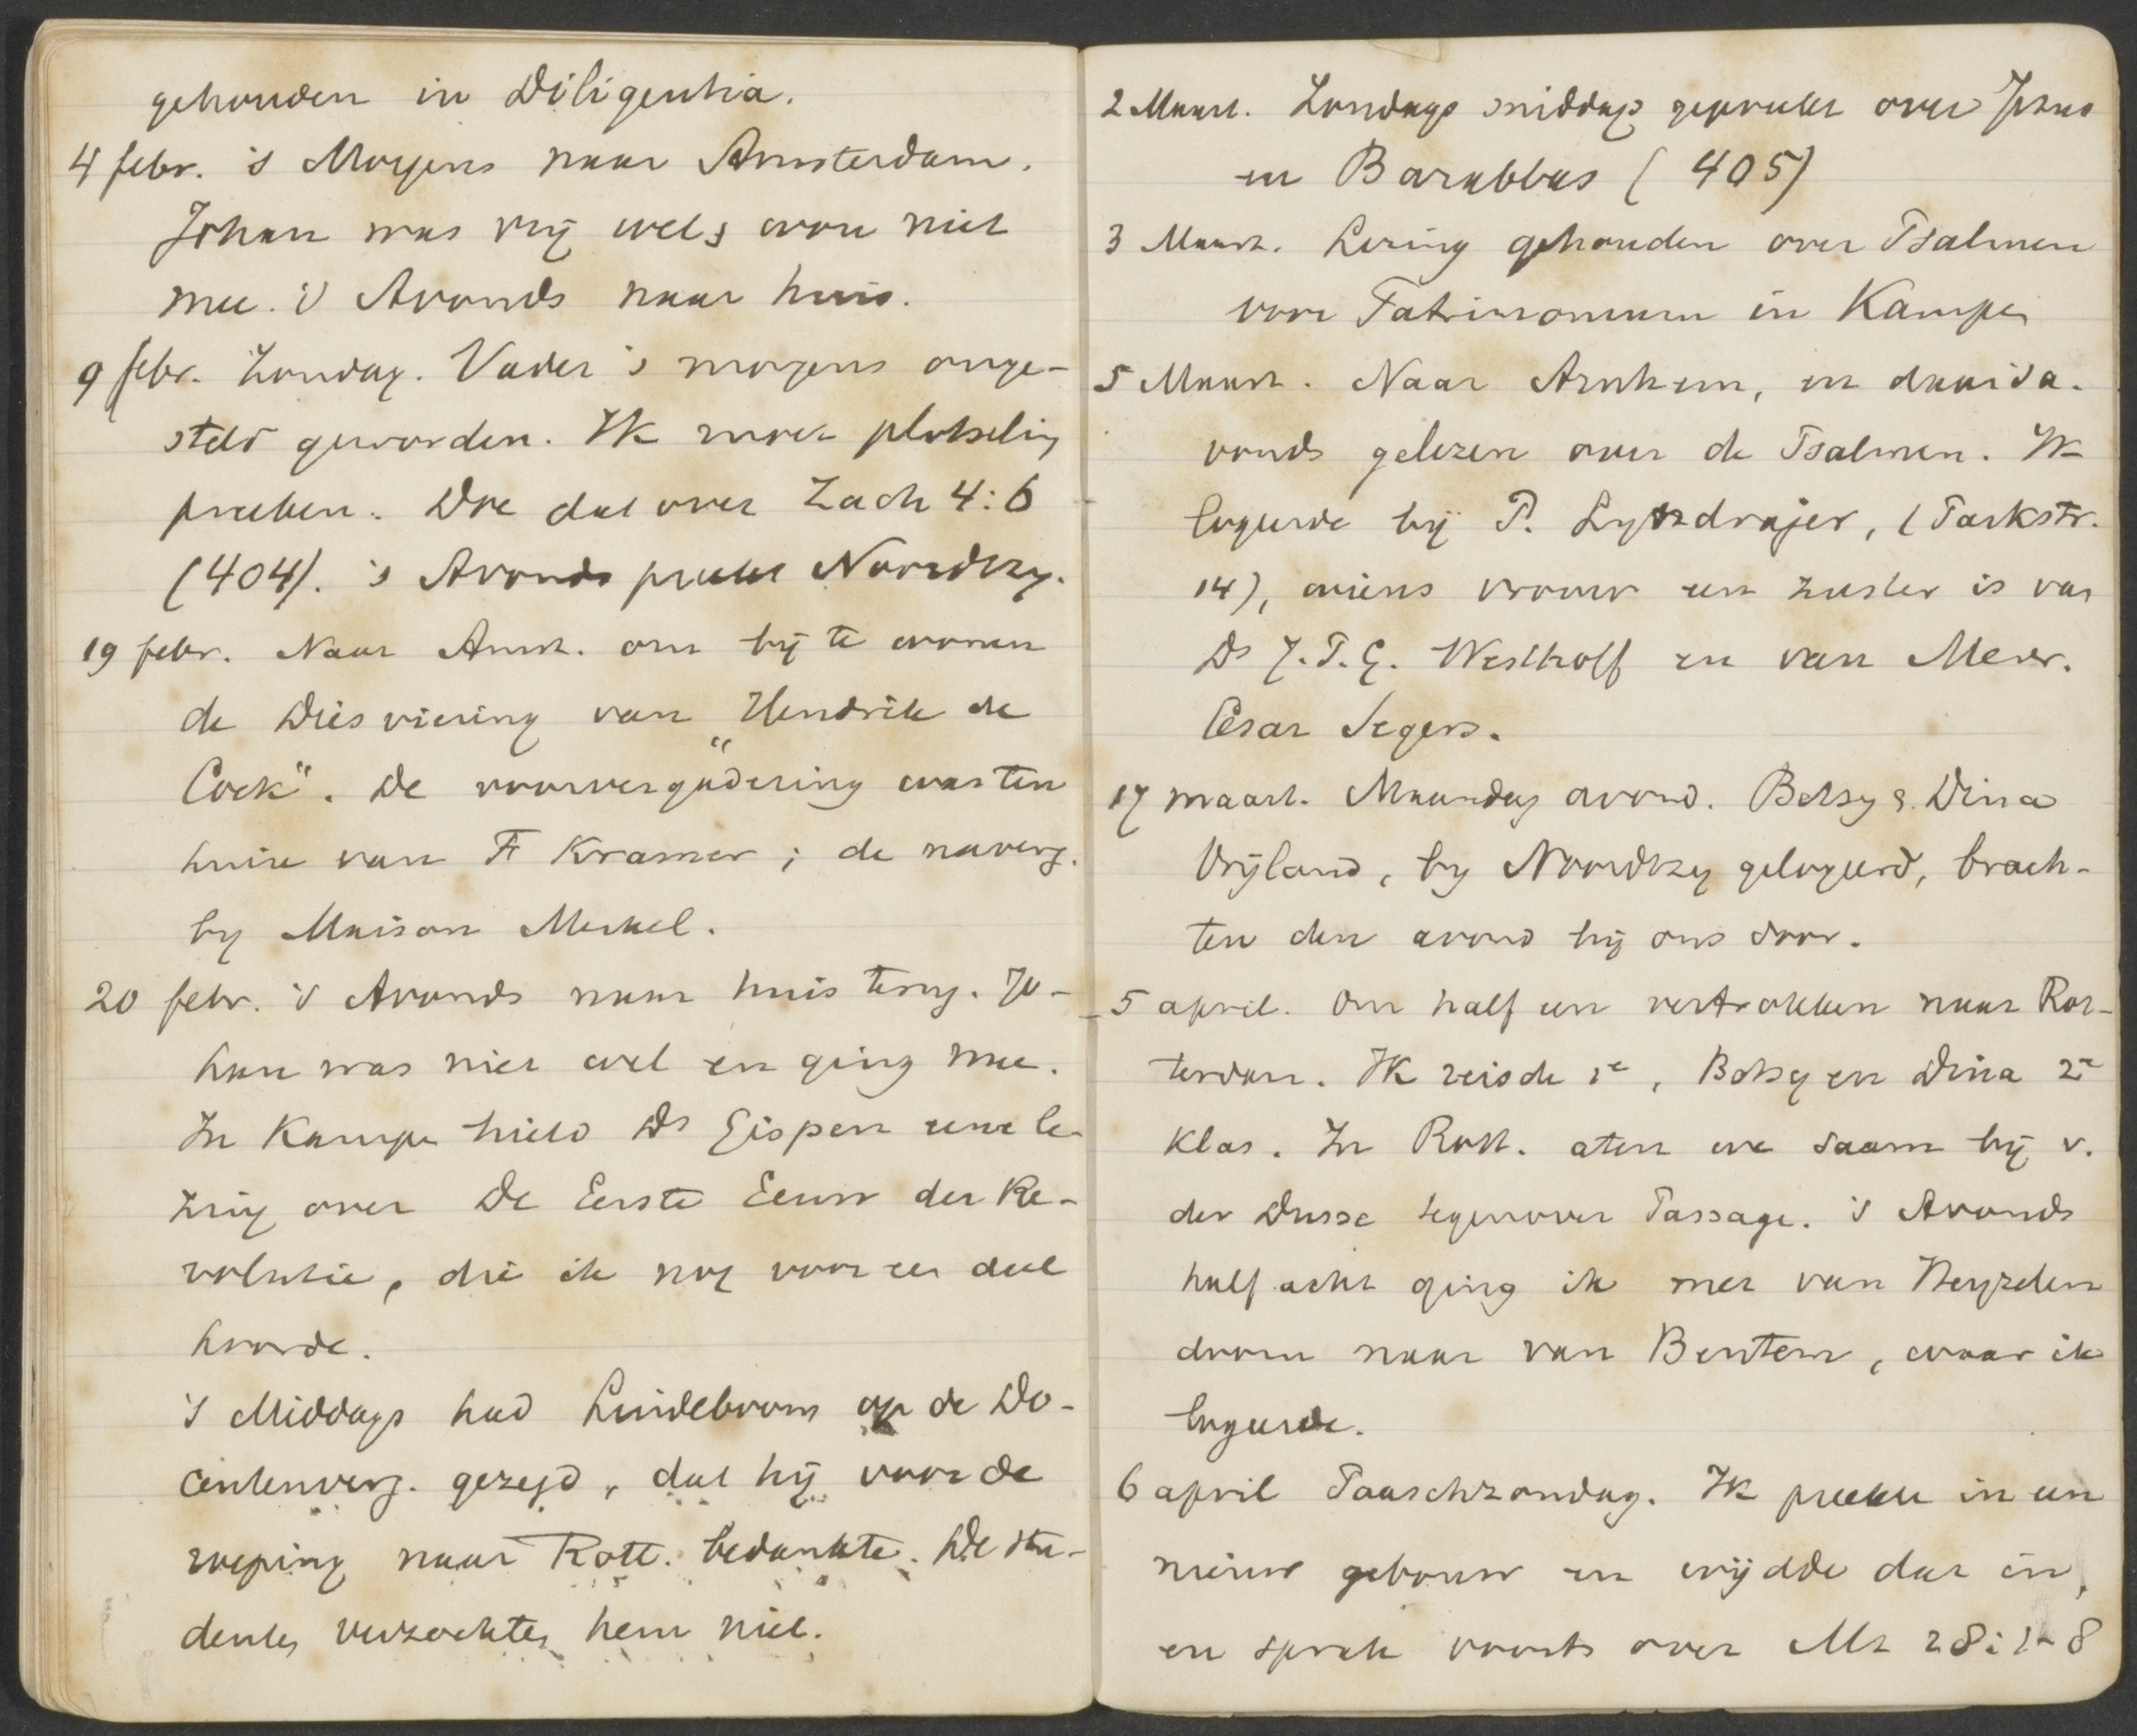 gehouden in Diligentia.
4 febr. 's Morgens naar Amsterdam.
Johan was vrij wel & won niet
mee. 's Avonds naar huis.
9 febr. Zondag. Vader 's morgens onge-
steld geworden. Ik moest plotseling
preeken. Doe dat over Zach 4:6
(404). 's Avonds preekt Noordtzy.
19 febr. Naar Amst. om bij te wonen
de Diesviering van „Hendrik de
Cock". De voorvergadering was ten
huize van F Kramer; de naverg.
by Maison Merkel.
20 febr. 's Avonds naar huis terug. Jo-
han was niet wel en ging mee.
In Kampen hield Ds Gispen eene le-
zing over De Eerste Eeuw der Re-
volutie, die ik nog voor een deel
hoorde.
's Middags had Lindeboom op de Do-
centenverg. gezegd, dat hij voor de
roeping naar Rott. bedankte. De stu-
denten verzochten hem niet.
2 Maart. Zondags middag gepreekt over Jezus
en Barabbas (405)
3 Maart. Lezing gehouden over Psalmen
voor Patrimonium in Kampen
5 Maart. Naar Arnhem, en daar 's a-
vonds gelezen over de Psalmen. Ik
logeerde bij P. Lytzdrajer, (Parkstr.
14), wiens vrouw een zuster is van
Ds J.P.G. Westhoff en van Mevr.
César Segers.
17 maart. Maandag avond. Betsy & Dina
Vrijland, by Noordtzy gelogeerd, brach-
ten den avond bij ons door.
5 april. Om half een vertrokken naar Rot-
terdam. Ik reisde 1e, Betsy en Dina 2e
klas. In Rott. aten we saam bij v.
der Dusse tegenover Passage. 's Avonds
half acht ging ik met van Neyzelen
droom naar van Bentem, waar ik
logeerde.
6 april Paaschzondag. Ik preekte in een
nieuw gebouw en wijdde dat in,
en sprak voorts over Mt 28:1-8